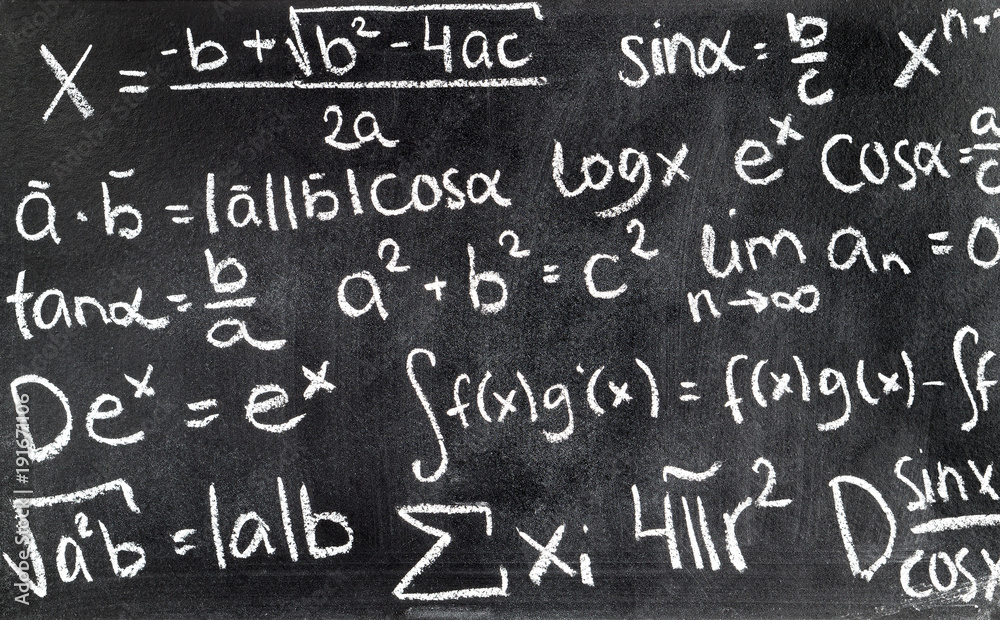 x = (-b + √(b² - 4ac)) / 2a   sinα = b/c   xⁿ⁺
ā · b̄ = |ā||b̄|cosα   logx   eˣ   cosα = a/c
tanα = b/a   a² + b² = c²   lim n→∞ aₙ = 0
Deˣ = eˣ   ∫f(x)g'(x) = f(x)g(x) - ∫f
√(a²b) = |a|b   ∑xᵢ   4πr²   D sinx/cosx
Adobe Stock | 191671106